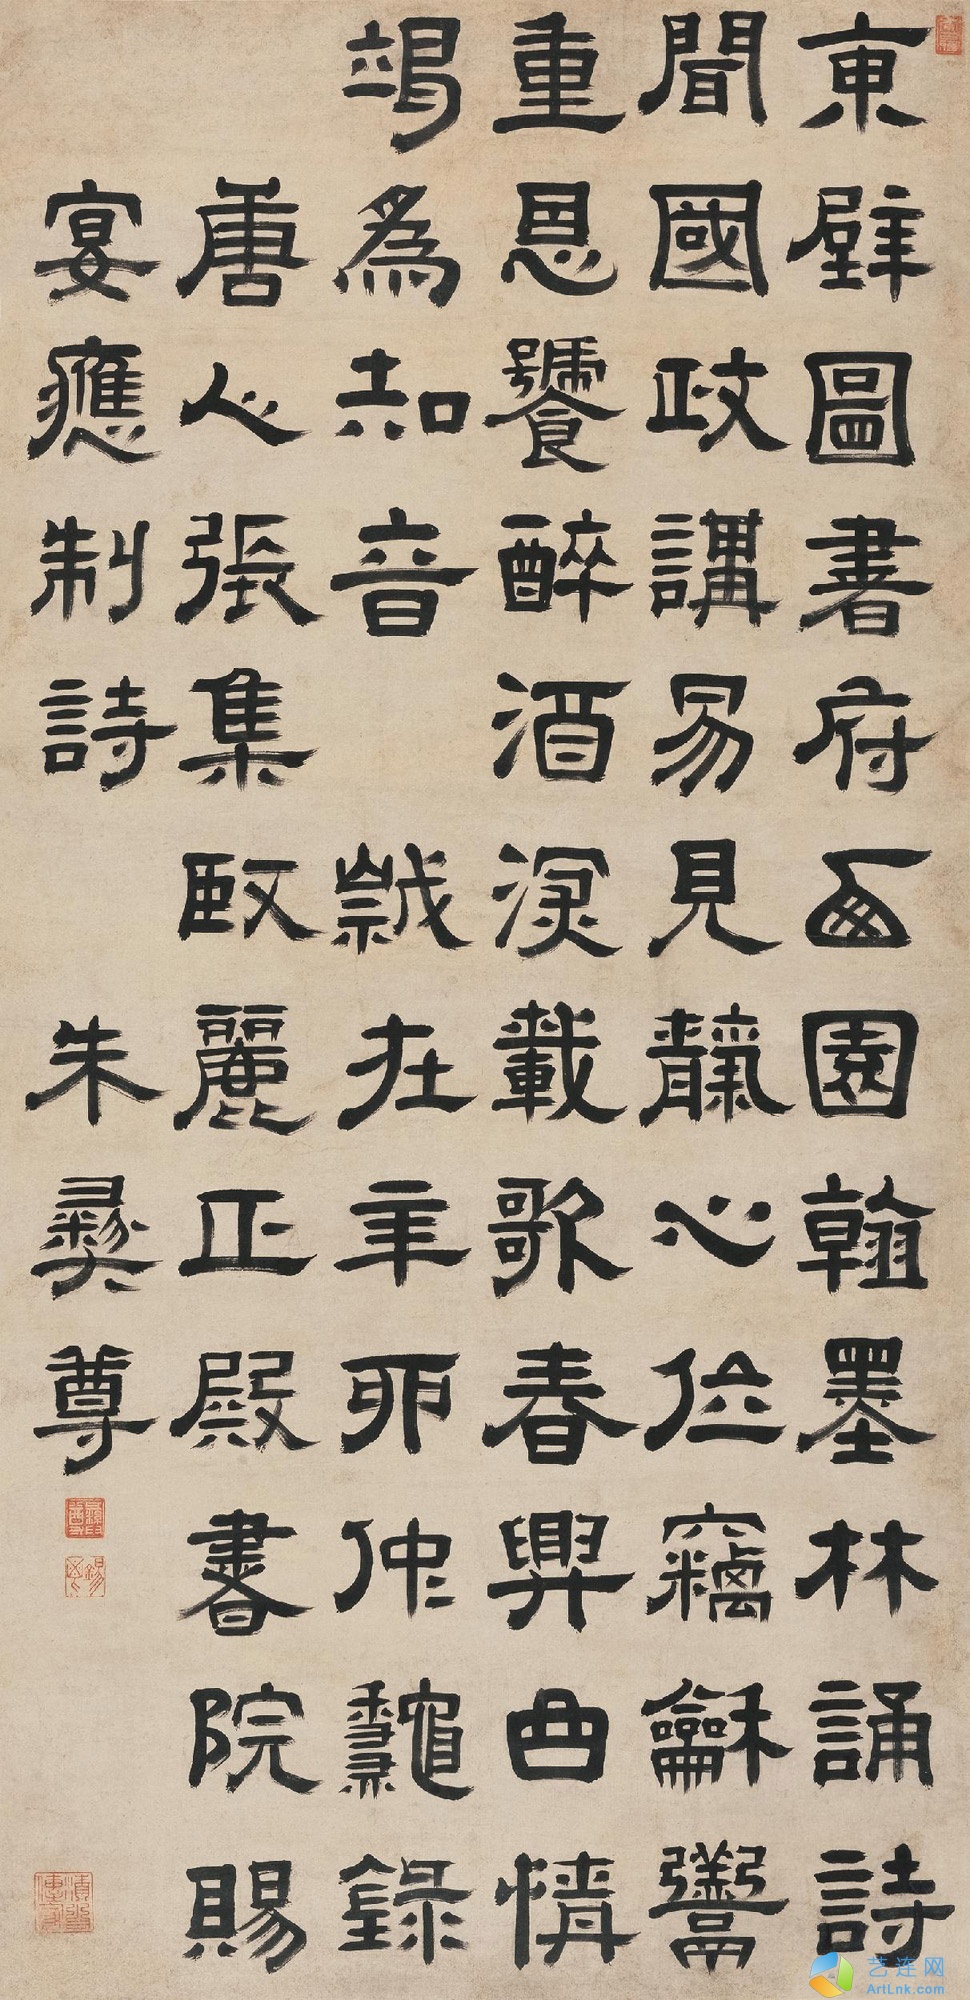 東壁圖書府西園翰墨林誦詩
聞國政講易見靜心位竊龢羹
重恩饕醉酒深載歌春興曲情
竭為知音 歲在辛卯仲龝錄
唐人張集臤麗正殿書院賜
宴應制詩 朱彝尊
艺连网
ArtLnk.com